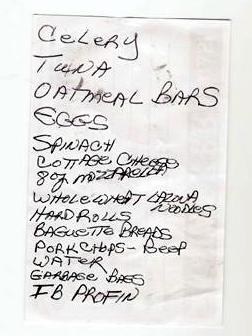 CELERY
TUNA
OATMEAL BARS
EGGS
SPINACH
COTTAGE CHEESE
8oz MOZZARELLA
WHOLE WHEAT
NOODLES
HARD ROLLS
BAGUETTE BREADS
PORK CHOPS - BEEF
WATER
GARBAGE BAGS
IB PROFIN